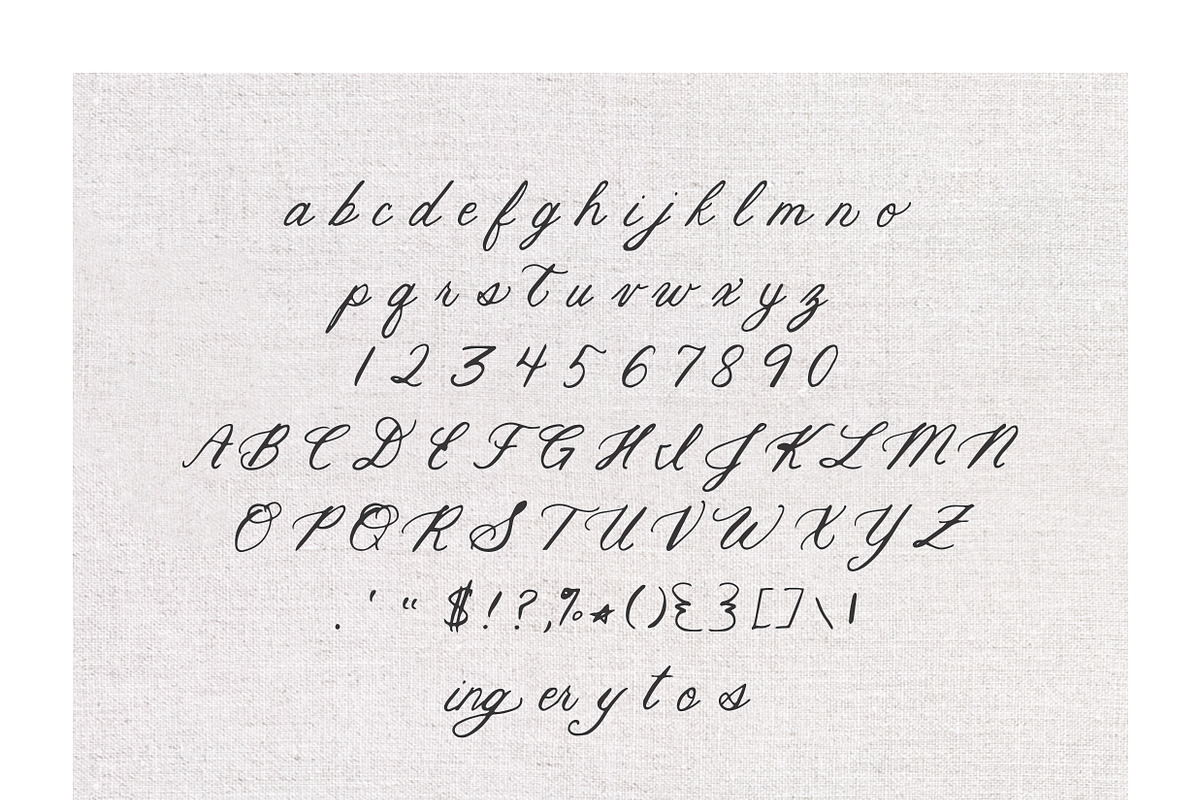 a b c d e f g h i j k l m n o
p q r s t u v w x y z
1 2 3 4 5 6 7 8 9 0
A B C D E F G H I J K L M N
O P Q R S T U V W X Y Z
. ' “ $ ! ? , % * ( ) { } [ ] \ |
ing er y t o s